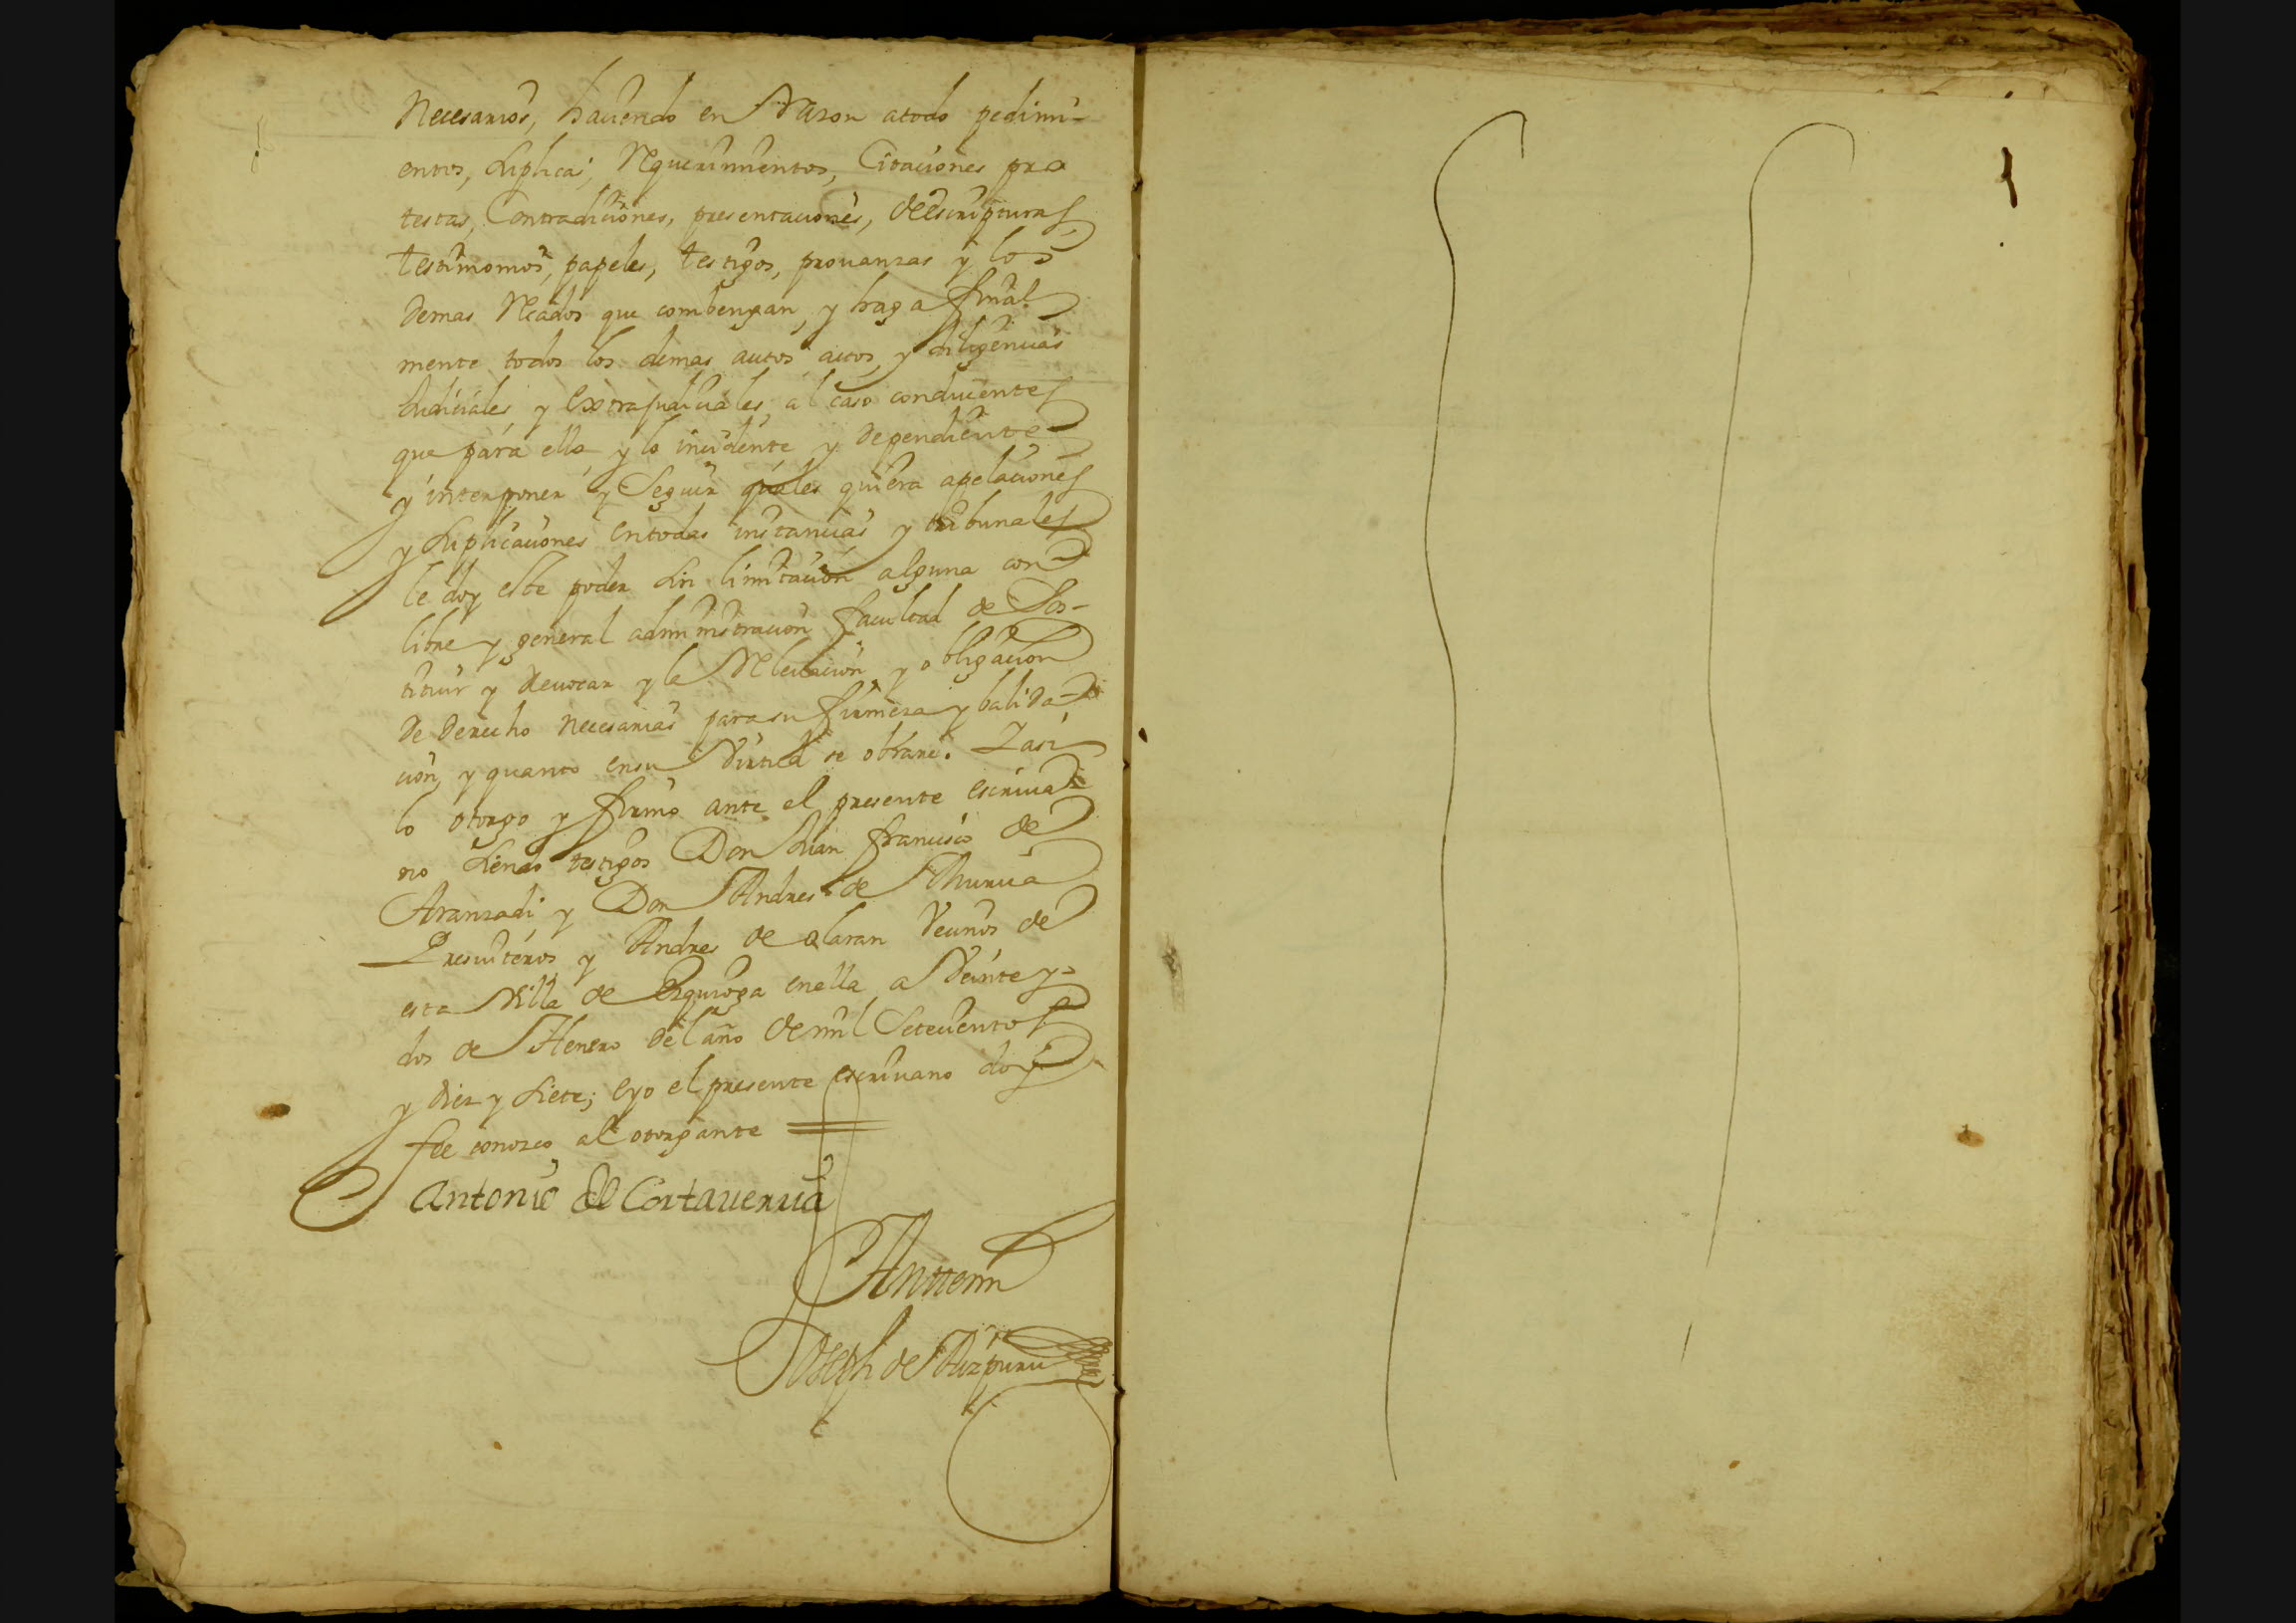 Necesarios, haviendo en Razon atodo pedimi-
entos, suplicas, Requerimientos, Citaciones pro
testas, Contradiciones, presentaciones, de escripturas
testimonios, papeles, testigos, provanzas y los
demas Recados que combengan, y haga final
mente todos los demas autos, actos, y diligencias
Judiciales y Extrajudiciales, al caso conducentes
que para ello y lo incidente y dependiente
y interponer y Seguir quales quiera apelaciones
y suplicaciones entodas instancias y tribunales
le doy este poder sin limitacion alguna con
libre y general administracion facultad de Sos-
tituir y Revocar y la Relevacion y obligacion
de derecho necesarias para su firmeza y balida
cion, y quanto ensu Virtud se obrare. Y asi
lo otorgo y firmo ante el presente escriva
no siendo testigos Don Juan francisco de
Aranzadi y Don Andres de
Presviteros y Andres de olaran Vecinos de
esta Villa de Ezquioga enella, a Veinte y
dos de Henero del año de mil Setecientos
y diez y siete; eyo el presente escrivano doy
fee conozco al otorgante
Antonio de Cortaverria
Antemi
Joseph de Aizpuru